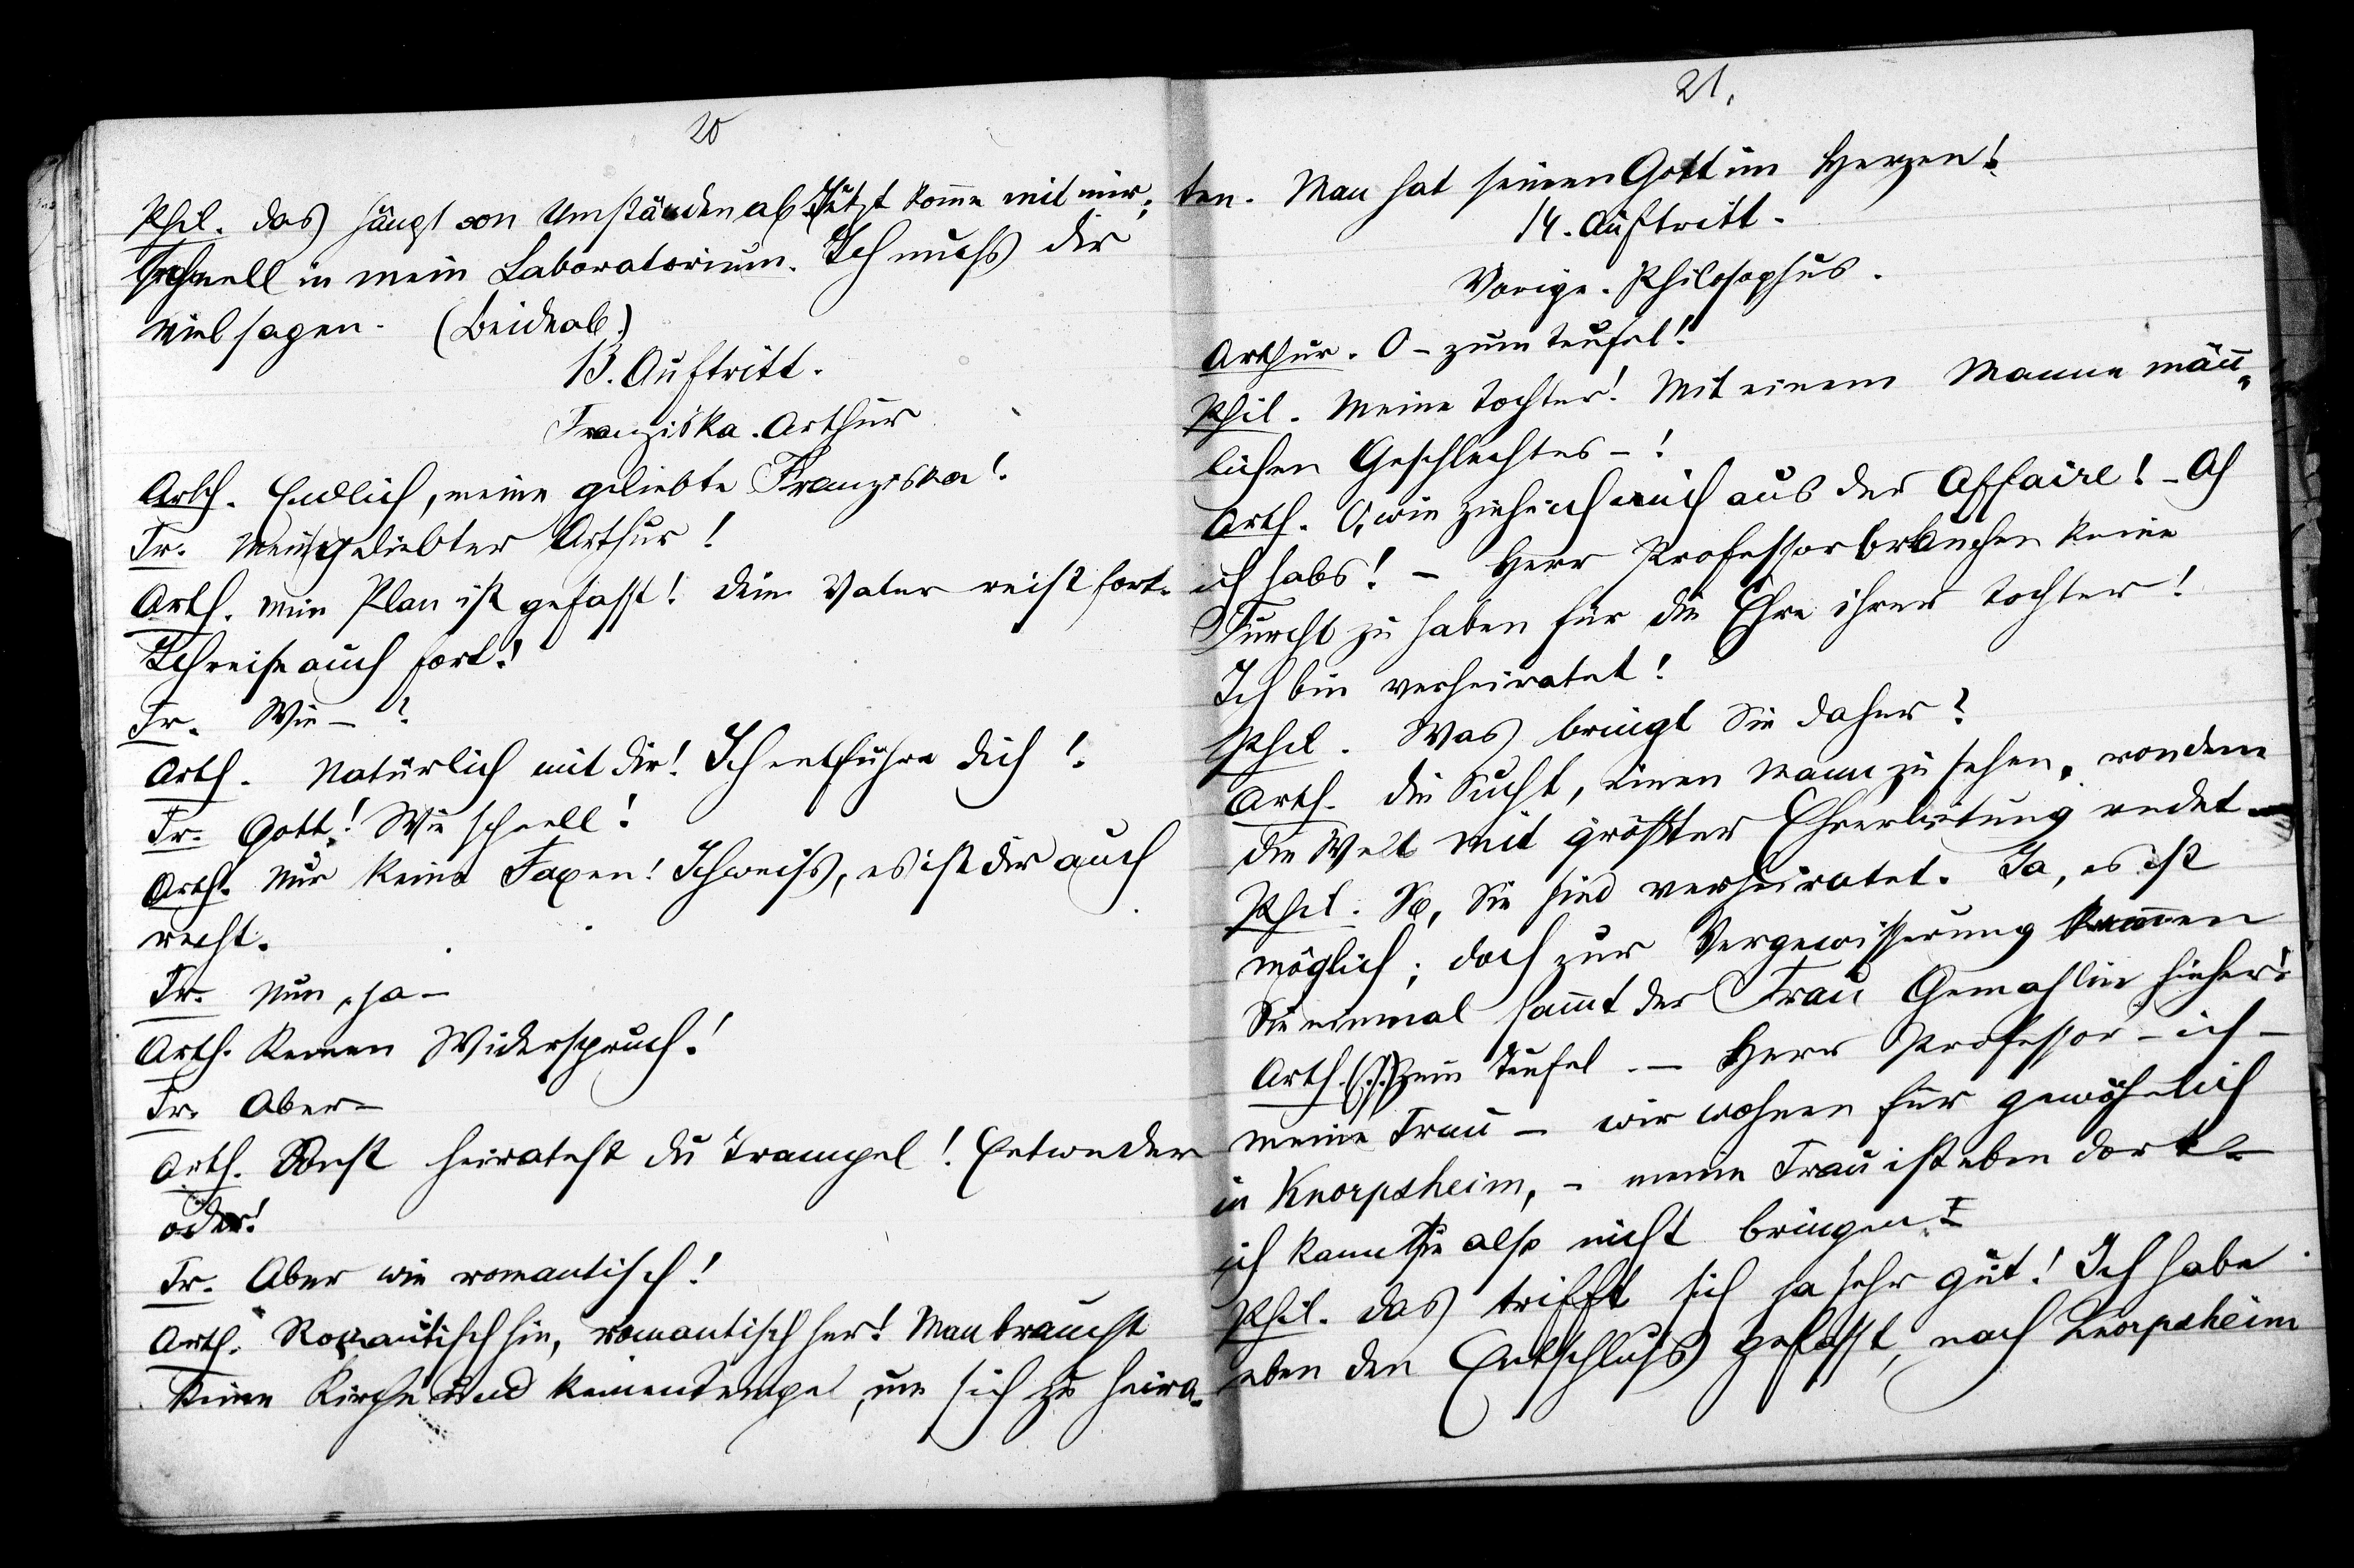 20
Phil. das hängt von Umständen ab. Jetzt kome mit mir;
schnell in mein Laboratorium. Ich muss dir
viel sagen. (Beide ab.)
13. Auftritt.
Franziska. Arthur
Arth. Endlich, meine geliebte Franziska!
Fr. Mein geliebter Arthur!
Arth. Mein Plan ist gefasst! dein Vater reist fort.
Ich reise auch fort!
Fr. Wie -?
Arth. Natürlich mit dir! Ich entführe dich!
Fr. Gott! Wie schnell!
Arth. Nur keine Faxen! Ich weiss, es ist dir auch
recht.
Fr. Nun, ja -
Arth. Keinen Widerspruch!
Fr. Aber -
Arth. Sonst heiratest du Trampel! Entweder
oder!
Fr. Aber wie romantisch!
Arth. Romantisch hin, romantisch her! Man braucht
keine Kirche und keinen Tempel, um sich zu heira-
21.
ten. Man hat seinen Gott im Herzen!
14. Auftritt.
Vorige. Philosophus.
Arthur. O - zum Teufel!
Phil. Meine Tochter! Mit einem Manne män-
lichen Geschlechtes -!
Arth. O, wie ziehe ich mich aus der Affaire! - Ah
ich habs! - Herr Professor brauchen keine
Furcht zu haben für die Ehre ihrer Tochter!
Ich bin verheiratet!
Phil. Was bringt Sie daher?
Arth. die Sucht, einen Mann zu sehen, von dem
die Welt mit größter Ehrerbietung redet -
Phil. So, Sie sind verheiratet. Ja, es ist
möglich; doch zur Vergewisserung kommen
Sie einmal samt der Frau Gemahlin hieher!
Arth. (f.s.) Zum Teufel. - Herr Professor - ich -
meine Frau - wir wohnen für gewöhnlich
in Knorpsheim, - meine Frau ist eben dort -
ich kann sie also nicht bringen!
Phil. das trifft sich ja sehr gut! Ich habe
eben den Entschluss gefasst, nach Knorpsheim